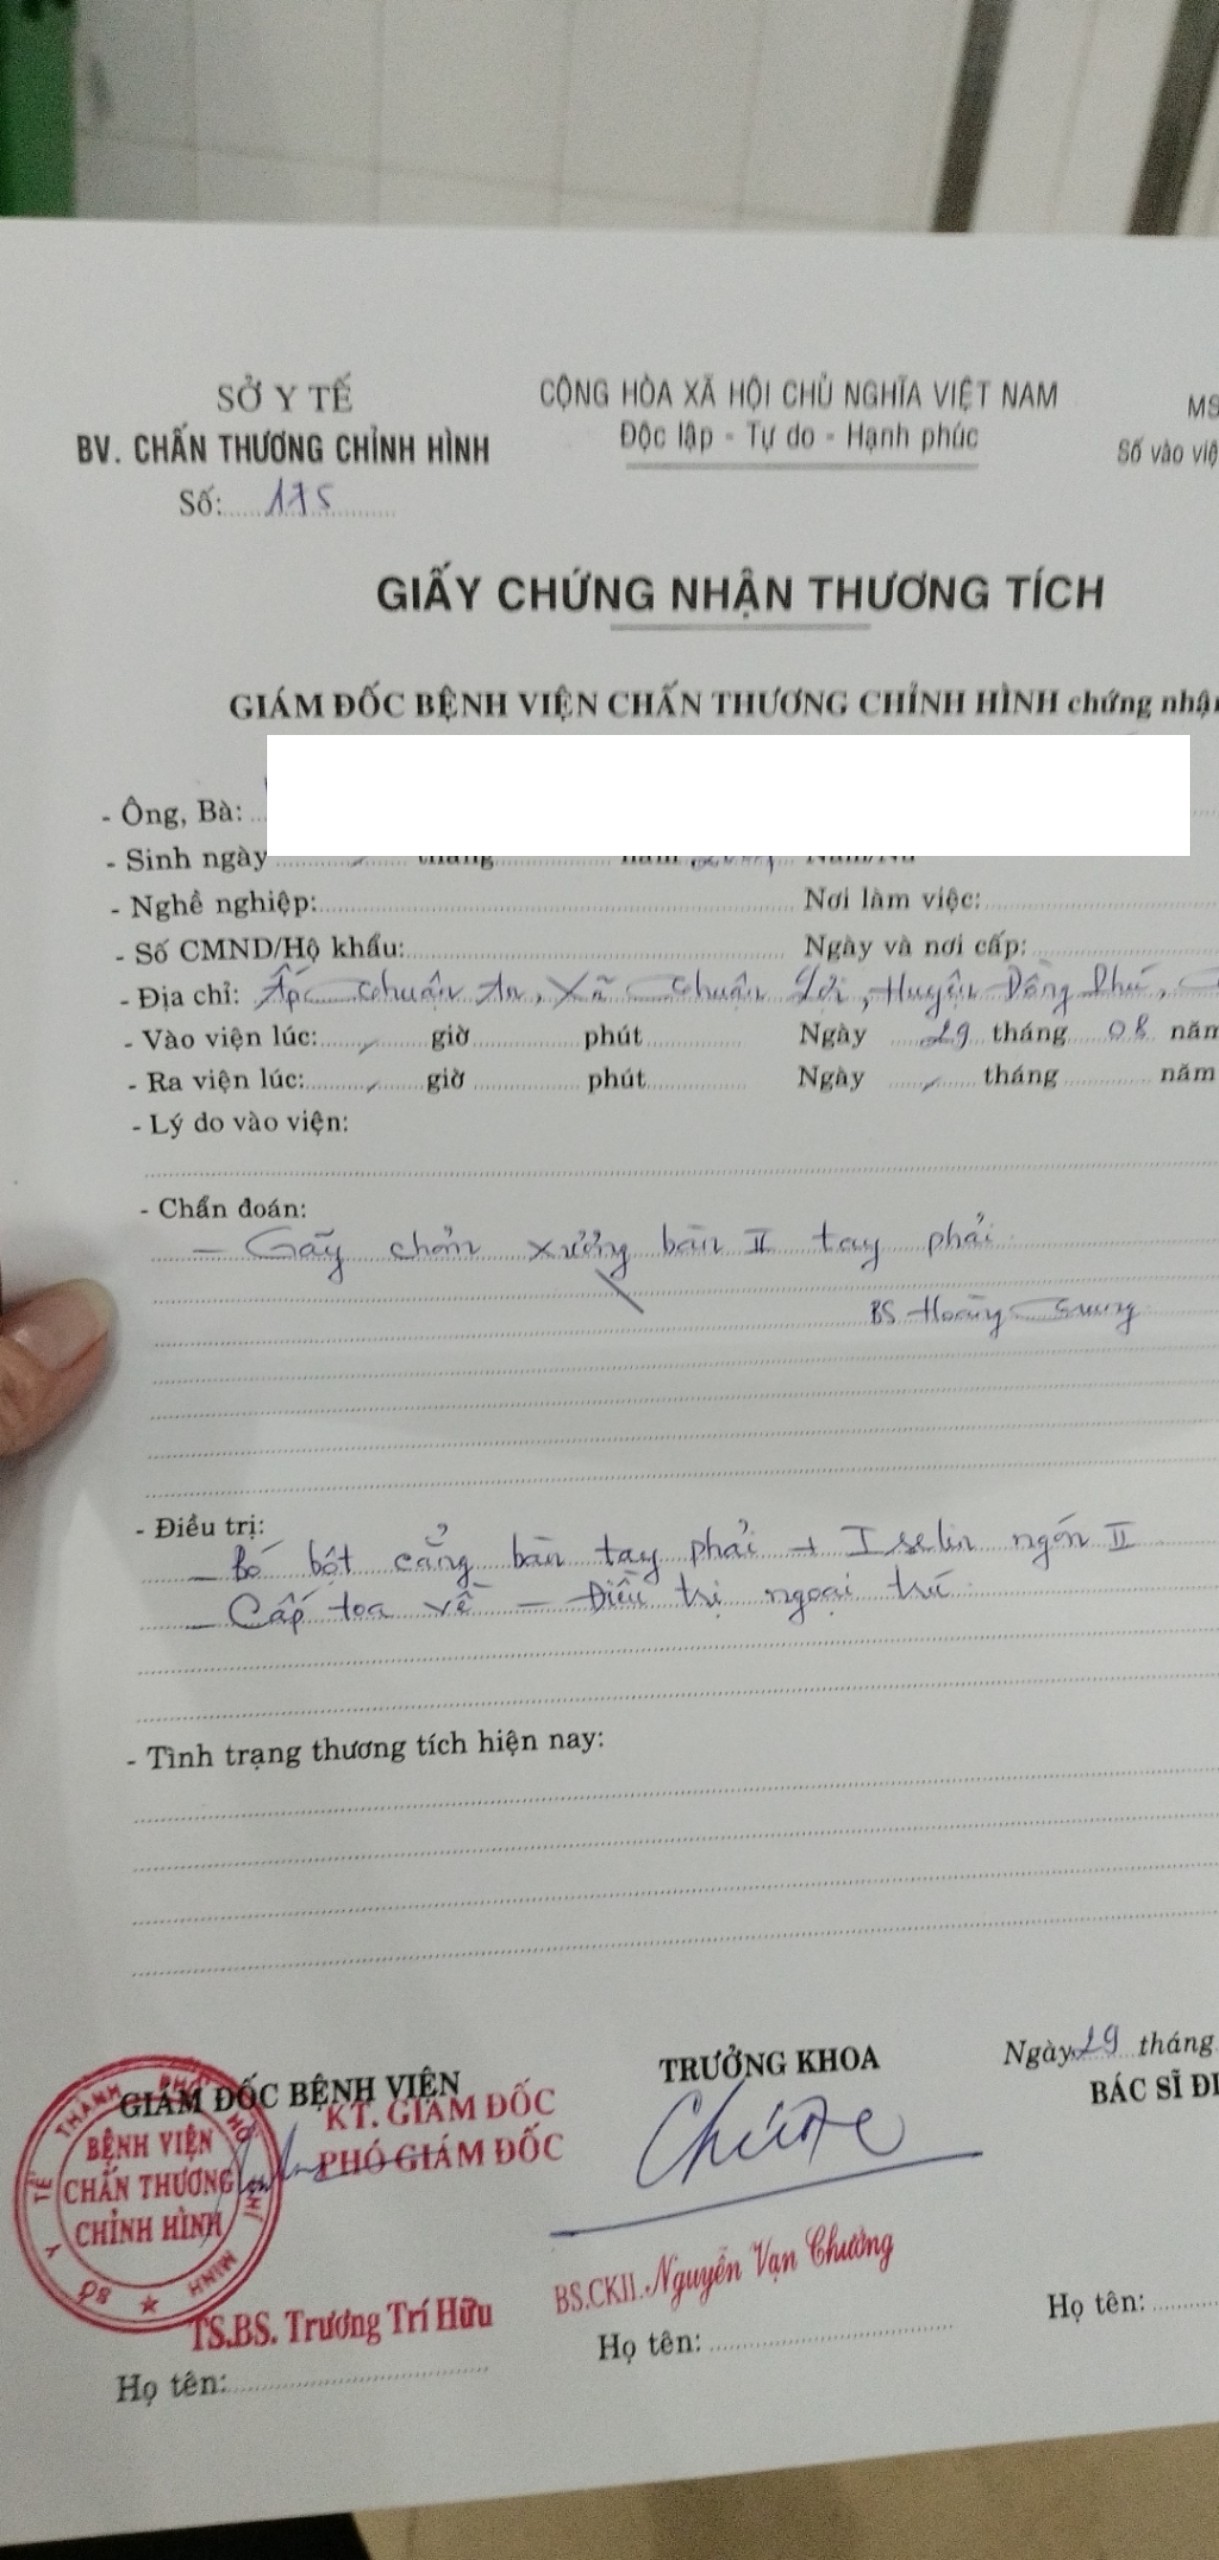 SỞ Y TẾ
BV. CHẤN THƯƠNG CHỈNH HÌNH
Số: 175
CỘNG HÒA XÃ HỘI CHỦ NGHĨA VIỆT NAM
Độc lập - Tự do - Hạnh phúc
MS
Số vào việ
GIẤY CHỨNG NHẬN THƯƠNG TÍCH
GIÁM ĐỐC BỆNH VIỆN CHẤN THƯƠNG CHỈNH HÌNH chứng nhận
- Ông, Bà:
- Sinh ngày tháng năm Nam/Nữ
- Nghề nghiệp: Nơi làm việc:
- Số CMND/Hộ khẩu: Ngày và nơi cấp:
- Địa chỉ: Ấp Thuận An, Xã Thuận Lợi, Huyện Đồng Phú,
- Vào viện lúc: giờ phút Ngày 29 tháng 08 năm
- Ra viện lúc: giờ phút Ngày tháng năm
- Lý do vào viện:
- Chẩn đoán:
- Gãy chỏm xương bàn II tay phải
BS Hoàng Trung
- Điều trị:
- Bó bột cẳng bàn tay phải + Iselin ngón II
- Cấp toa về - Điều trị ngoại trú
- Tình trạng thương tích hiện nay:
Ngày 29 tháng
GIÁM ĐỐC BỆNH VIỆN
TRƯỞNG KHOA
BÁC SĨ ĐI
KT. GIÁM ĐỐC
PHÓ GIÁM ĐỐC
SỞ Y TẾ THÀNH PHỐ HỒ CHÍ MINH
BỆNH VIỆN
CHẤN THƯƠNG
CHỈNH HÌNH
TS.BS. Trương Trí Hữu
BS.CKII. Nguyễn Vạn Chường
Họ tên:
Họ tên:
Họ tên: